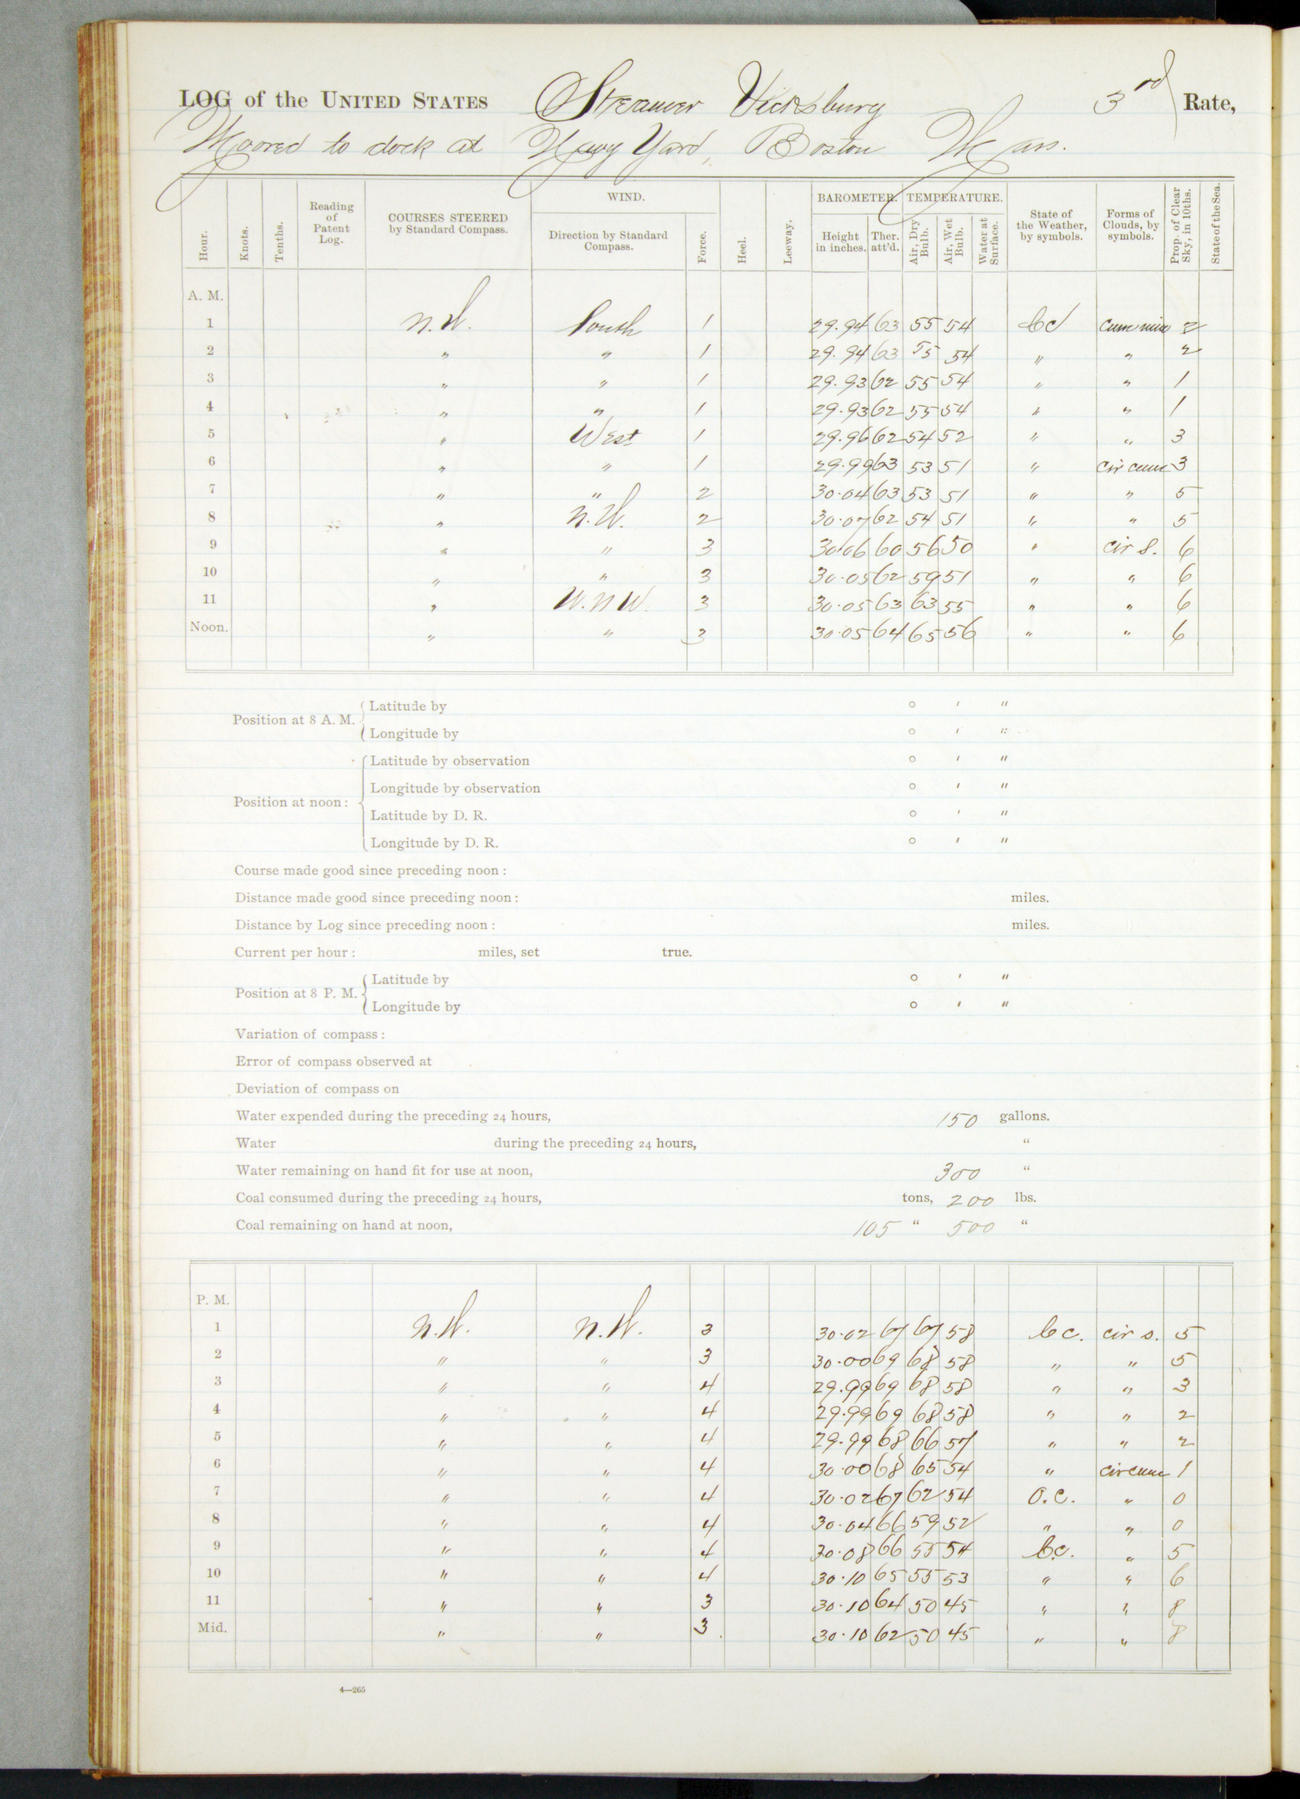 LOG of the UNITED STATES Steamer Vicksburg 3rd Rate,
Moored to dock at Navy Yard, Boston Mass.
Hour. Knots. Tenths. Reading of Patent Log. COURSES STEERED by Standard Compass. WIND. Direction by Standard Compass. Force. Heel. Leeway. BAROMETER. Height in inches. Ther. att'd. TEMPERATURE. Air, Dry Bulb. Air, Wet Bulb. Water at Surface. State of the Weather, by symbols. Forms of Clouds, by symbols. Prop. of Clear Sky, in 10ths. State of the Sea.
A. M.
1 N.W. South 1 29.94 63 55 54 bc cum nim 2
2 " " 1 29.94 63 55 54 " " 2
3 " " 1 29.93 62 55 54 " " 1
4 " " 1 29.93 62 55 54 " " 1
5 " West 1 29.96 62 54 52 " " 3
6 " " 1 29.99 63 53 51 " cir cum 3
7 " " 2 30.04 63 53 51 " " 5
8 " N.W. 2 30.07 62 54 51 " " 5
9 " " 3 30.06 60 56 50 " cir s. 6
10 " " 3 30.05 62 59 51 " " 6
11 " W.N.W. 3 30.05 63 63 55 " " 6
Noon. " " 3 30.05 64 65 56 " " 6
Position at 8 A. M. { Latitude by ° ' "
Longitude by ° ' "
Position at noon: { Latitude by observation ° ' "
Longitude by observation ° ' "
Latitude by D. R. ° ' "
Longitude by D. R. ° ' "
Course made good since preceding noon:
Distance made good since preceding noon: miles.
Distance by Log since preceding noon: miles.
Current per hour: miles, set true.
Position at 8 P. M. { Latitude by ° ' "
Longitude by ° ' "
Variation of compass:
Error of compass observed at
Deviation of compass on
Water expended during the preceding 24 hours, 150 gallons.
Water during the preceding 24 hours, "
Water remaining on hand fit for use at noon, 300 "
Coal consumed during the preceding 24 hours, tons, 200 lbs.
Coal remaining on hand at noon, 105 " 500 "
P. M.
1 N.W. N.W. 3 30.02 67 67 58 bc. cir s. 5
2 " " 3 30.00 69 68 58 " " 5
3 " " 4 29.99 69 68 58 " " 3
4 " " 4 29.99 69 68 58 " " 2
5 " " 4 29.99 68 66 57 " " 2
6 " " 4 30.00 68 65 54 " cir cum 1
7 " " 4 30.02 67 62 54 O.C. " 0
8 " " 4 30.04 66 59 52 " " 0
9 " " 4 30.08 66 55 54 b.c. " 5
10 " " 4 30.10 65 55 53 " " 6
11 " " 3 30.10 64 50 45 " " 8
Mid. " " 3 30.10 62 50 45 " " 8
4—265